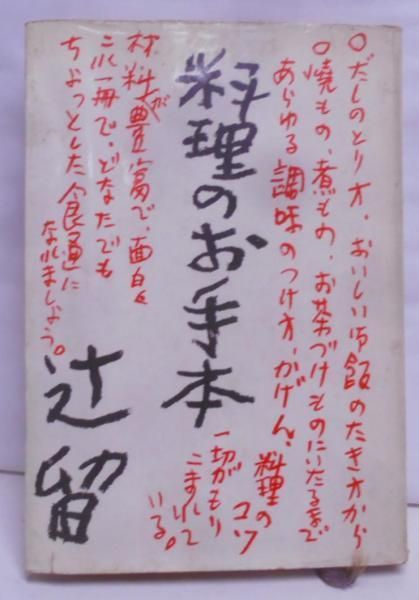 ○だしのとり方、おいしい御飯のたき方から
○焼もの、煮もの、お茶づけものにいたるまで
あらゆる調味のつけ方、かげん、
料理の
コツ
一切がもり
こまれて
いる。
料理のお手本
辻留
材料が豊富で、面白く
これ一冊で、どなたでも
ちょっとした食通に
なれましょう。